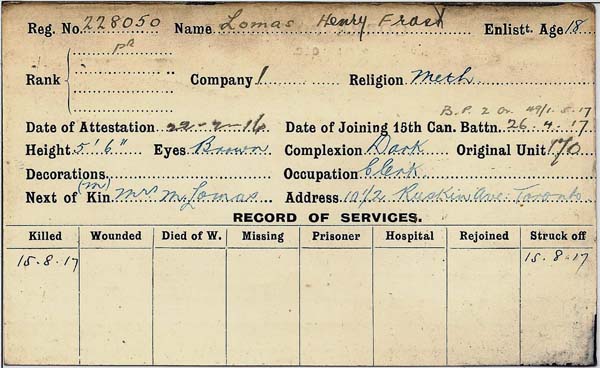 Reg. No. 228050 Name Lomas Henry Frost Enlistt. Age 18
Pte
Rank Company 1 Religion Meth
B.P. 2 Or. 49/1-5-17
Date of Attestation 22-2-16 Date of Joining 15th Can. Battn. 26.4.17
Height 5' 6" Eyes Brown Complexion Dark Original Unit 170
Decorations Occupation Clerk
(M)
Next of Kin Mrs M. Lomas Address 10 1/2 Ruskin Ave. Toronto
RECORD OF SERVICES.
Killed Wounded Died of W. Missing Prisoner Hospital Rejoined Struck off
15.8.17 15.8.17